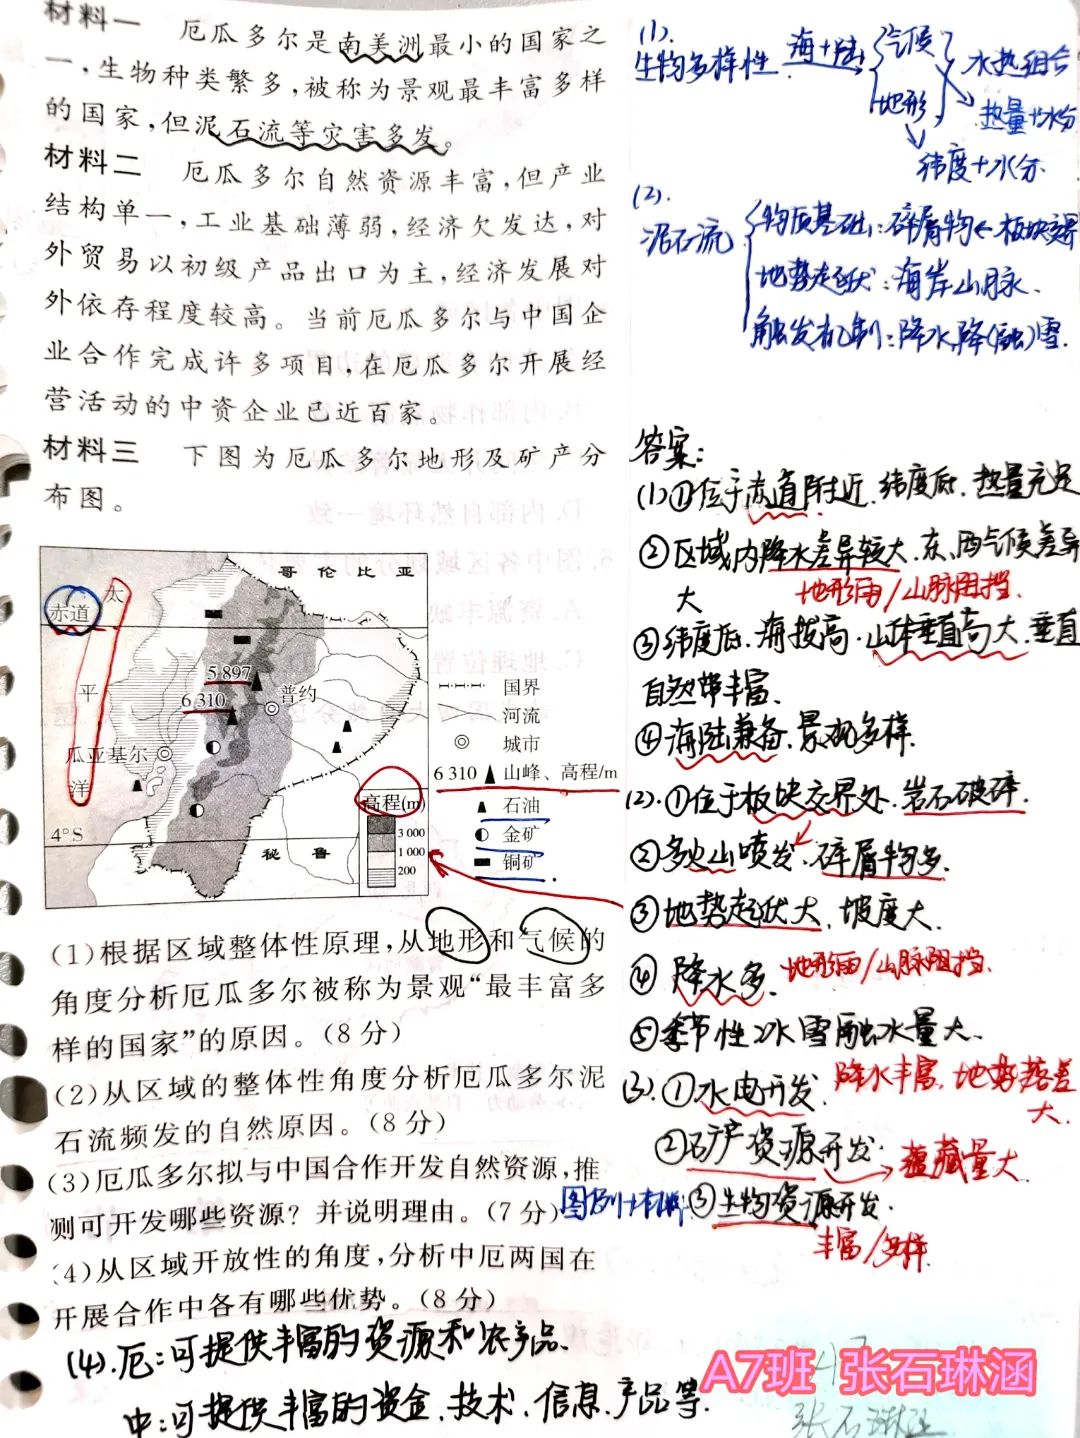 材料一 厄瓜多尔是南美洲最小的国家之
一,生物种类繁多,被称为景观最丰富多样
的国家,但泥石流等灾害多发。
材料二 厄瓜多尔自然资源丰富,但产业
结构单一,工业基础薄弱,经济欠发达,对
外贸易以初级产品出口为主,经济发展对
外依存程度较高。当前厄瓜多尔与中国企
业合作完成许多项目,在厄瓜多尔开展经
营活动的中资企业已近百家。
材料三 下图为厄瓜多尔地形及矿产分
布图。
哥伦比亚
太
赤道
平
洋
5 897
6 310
普约
瓜亚基尔
4°S
秘鲁
高程(m)
3 000
1 000
200
国界
河流
城市
6 310 山峰、高程/m
石油
金矿
铜矿
(1)根据区域整体性原理,从地形和气候的
角度分析厄瓜多尔被称为景观“最丰富多
样的国家”的原因。(8分)
(2)从区域的整体性角度分析厄瓜多尔泥
石流频发的自然原因。(8分)
(3)厄瓜多尔拟与中国合作开发自然资源,推
测可开发哪些资源?并说明理由。(7分)
(4)从区域开放性的角度,分析中厄两国在
开展合作中各有哪些优势。(8分)
(4).厄:可提供丰富的资源和农产品.
中:可提供丰富的资金、技术、信息、产品等.
(1).
生物多样性 海+陆 气候 水热组合
地形 热量+水分
纬度+水分
(2).
泥石流 物质基础:碎屑物←板块交界
地势起伏:海岸山脉.
触发机制:降水,降(融)雪.
答案:
(1)①位于赤道附近.纬度低.热量充足
②区域内降水差异较大.东、西气候差异
大 地形雨/山脉阻挡.
③纬度低.海拔高.山体垂直高大.垂直
自然带丰富.
④海陆兼备.景观多样.
(2).①位于板块交界处.岩石破碎.
②多火山喷发.碎屑物多.
③地势起伏大、坡度大.
④降水多. 地形雨/山脉阻挡.
⑤季节性冰雪融水量大.
(3).①水电开发. 降水丰富,地势落差
大.
②矿产资源开发. 蕴藏量大
图例+材料 ③生物资源开发.
丰富/多样
A7班 张石琳涵
张石琳涵